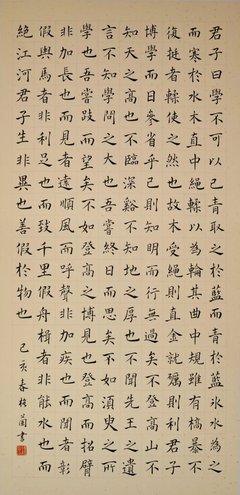 君子曰學不可以已青取之於藍而青於藍冰水為之
而寒於水木直中繩輮以為輪其曲中規雖有槁暴不
復挺者輮使之然也故木受繩則直金就礪則利君子
博學而日參省乎己則知明而行無過矣不登高山不
知天之高也不臨深谿不知地之厚也不聞先王之遺
言不知學問之大也吾嘗終日而思矣不如須臾之所
學也吾嘗跂而望矣不如登高之博見也登高而招臂
非加長也而見者遠順風而呼聲非加疾也而聞者彰
假輿馬者非利足也而致千里假舟楫者非能水也而
絕江河君子生非異也善假於物也
己亥春蘭書